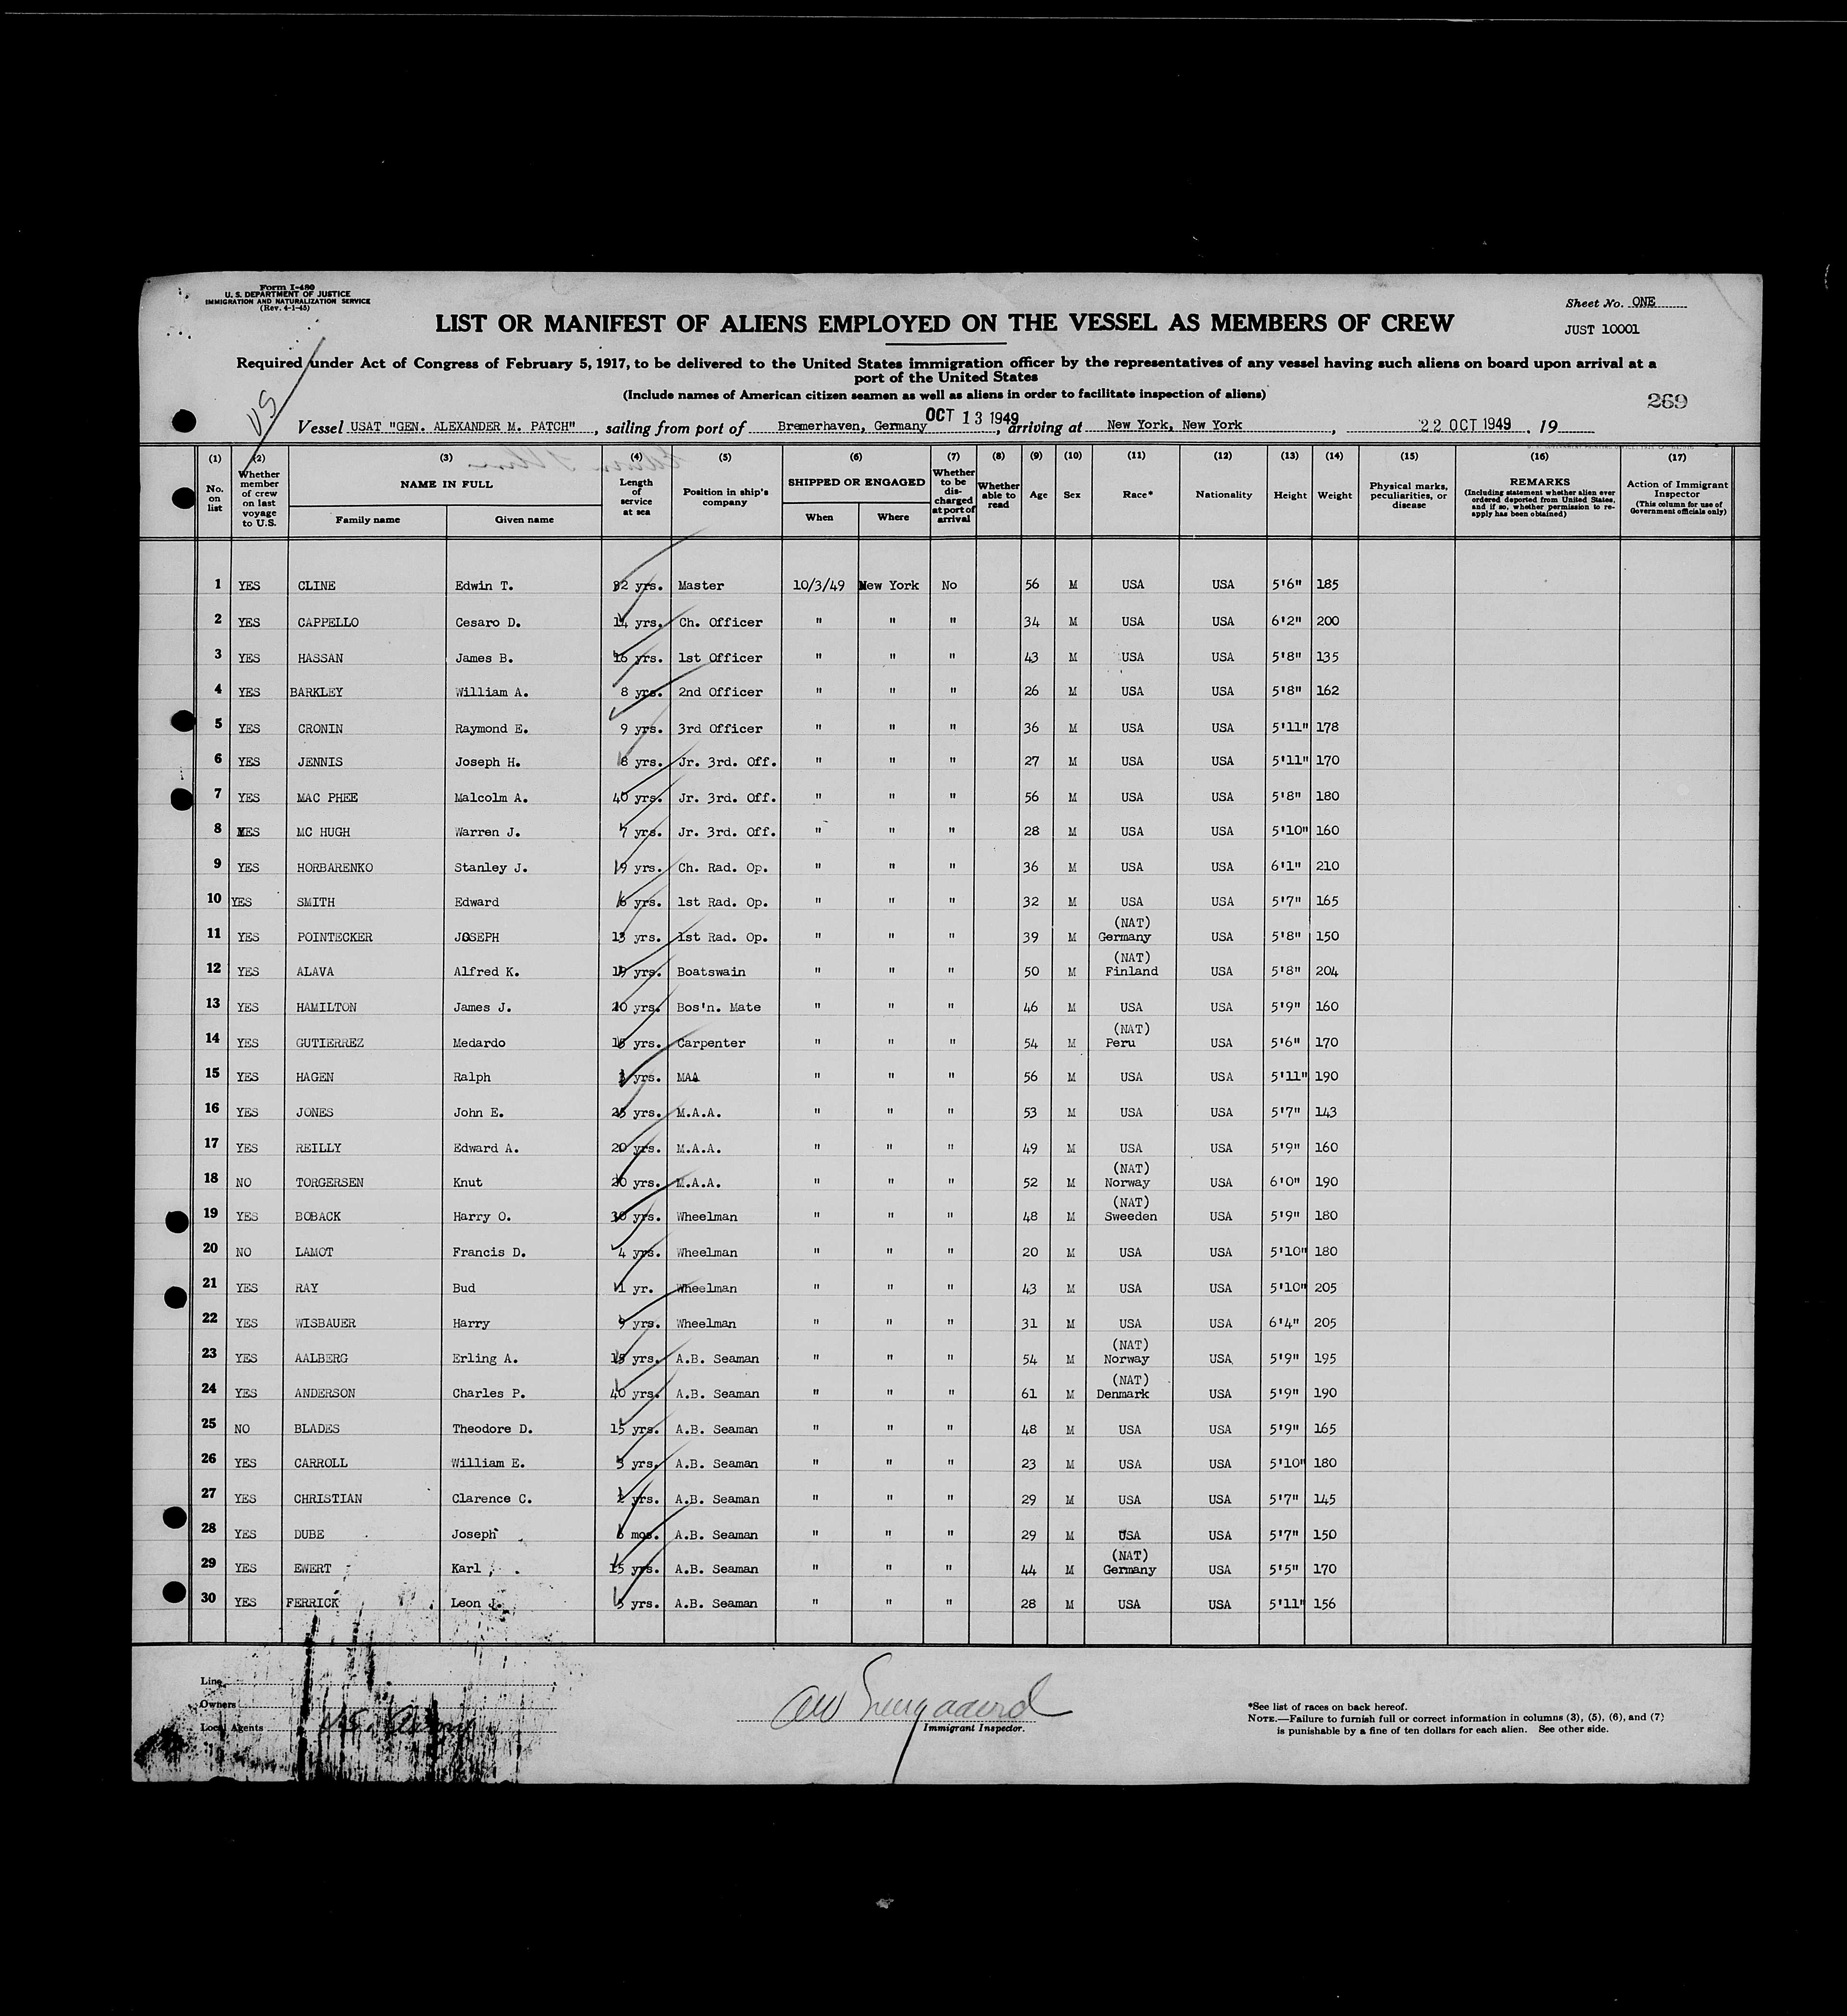 Form I-480
U. S. DEPARTMENT OF JUSTICE
IMMIGRATION AND NATURALIZATION SERVICE
(Rev. 4-1-45)
Sheet No. ONE
JUST 10001
LIST OR MANIFEST OF ALIENS EMPLOYED ON THE VESSEL AS MEMBERS OF CREW
Required under Act of Congress of February 5, 1917, to be delivered to the United States immigration officer by the representatives of any vessel having such aliens on board upon arrival at a
port of the United States
(Include names of American citizen seamen as well as aliens in order to facilitate inspection of aliens)
269
US
Vessel USAT "GEN. ALEXANDER M. PATCH", sailing from port of Bremerhaven, Germany OCT 13 1949, arriving at New York, New York, 22 OCT 1949, 19
(1) (2) (3) (4) (5) (6) (7) (8) (9) (10) (11) (12) (13) (14) (15) (16) (17)
No. on list
Whether member of crew on last voyage to U.S.
NAME IN FULL
Family name Given name
Length of service at sea
Position in ship's company
SHIPPED OR ENGAGED
When Where
Whether to be discharged at port of arrival
Whether able to read
Age Sex Race* Nationality Height Weight
Physical marks, peculiarities, or disease
REMARKS
(Including statement whether alien ever ordered deported from United States, and if so, whether permission to reapply has been obtained)
Action of Immigrant Inspector
(This column for use of Government officials only)
1 YES CLINE Edwin T. 32 yrs. Master 10/3/49 New York No 56 M USA USA 5'6" 185
2 YES CAPPELLO Cesaro D. 14 yrs. Ch. Officer " " " 34 M USA USA 6'2" 200
3 YES HASSAN James B. 16 yrs. 1st Officer " " " 43 M USA USA 5'8" 135
4 YES BARKLEY William A. 8 yrs. 2nd Officer " " " 26 M USA USA 5'8" 162
5 YES CRONIN Raymond E. 9 yrs. 3rd Officer " " " 36 M USA USA 5'11" 178
6 YES JENNIS Joseph H. 8 yrs. Jr. 3rd. Off. " " " 27 M USA USA 5'11" 170
7 YES MAC PHEE Malcolm A. 40 yrs. Jr. 3rd. Off. " " " 56 M USA USA 5'8" 180
8 YES MC HUGH Warren J. 7 yrs. Jr. 3rd. Off. " " " 28 M USA USA 5'10" 160
9 YES HORBARENKO Stanley J. 19 yrs. Ch. Rad. Op. " " " 36 M USA USA 6'1" 210
10 YES SMITH Edward 6 yrs. 1st Rad. Op. " " " 32 M USA USA 5'7" 165
11 YES POINTECKER JOSEPH 13 yrs. 1st Rad. Op. " " " 39 M (NAT) Germany USA 5'8" 150
12 YES ALAVA Alfred K. yrs. Boatswain " " " 50 M (NAT) Finland USA 5'8" 204
13 YES HAMILTON James J. 20 yrs. Bos'n. Mate " " " 46 M USA USA 5'9" 160
14 YES GUTIERREZ Medardo yrs. Carpenter " " " 54 M (NAT) Peru USA 5'6" 170
15 YES HAGEN Ralph yrs. MAA " " " 56 M USA USA 5'11" 190
16 YES JONES John E. 25 yrs. M.A.A. " " " 53 M USA USA 5'7" 143
17 YES REILLY Edward A. 20 yrs. M.A.A. " " " 49 M USA USA 5'9" 160
18 NO TORGERSEN Knut 20 yrs. M.A.A. " " " 52 M (NAT) Norway USA 6'0" 190
19 YES BOBACK Harry O. 30 yrs. Wheelman " " " 48 M (NAT) Sweeden USA 5'9" 180
20 NO LAMOT Francis D. 4 yrs. Wheelman " " " 20 M USA USA 5'10" 180
21 YES RAY Bud yr. Wheelman " " " 43 M USA USA 5'10" 205
22 YES WISBAUER Harry 9 yrs. Wheelman " " " 31 M USA USA 6'4" 205
23 YES AALBERG Erling A. yrs. A.B. Seaman " " " 54 M (NAT) Norway USA 5'9" 195
24 YES ANDERSON Charles P. 40 yrs. A.B. Seaman " " " 61 M (NAT) Denmark USA 5'9" 190
25 NO BLADES Theodore D. 15 yrs. A.B. Seaman " " " 48 M USA USA 5'9" 165
26 YES CARROLL William E. yrs. A.B. Seaman " " " 23 M USA USA 5'10" 180
27 YES CHRISTIAN Clarence C. yrs. A.B. Seaman " " " 29 M USA USA 5'7" 145
28 YES DUBE Joseph 6 mos. A.B. Seaman " " " 29 M USA USA 5'7" 150
29 YES EWERT Karl 15 yrs. A.B. Seaman " " " 44 M (NAT) Germany USA 5'5" 170
30 YES FERRICK Leon J. 5 yrs. A.B. Seaman " " " 28 M USA USA 5'11" 156
Line
Owners
Local Agents U.S. Army
Immigrant Inspector.
*See list of races on back hereof.
NOTE.—Failure to furnish full or correct information in columns (3), (5), (6), and (7)
is punishable by a fine of ten dollars for each alien. See other side.